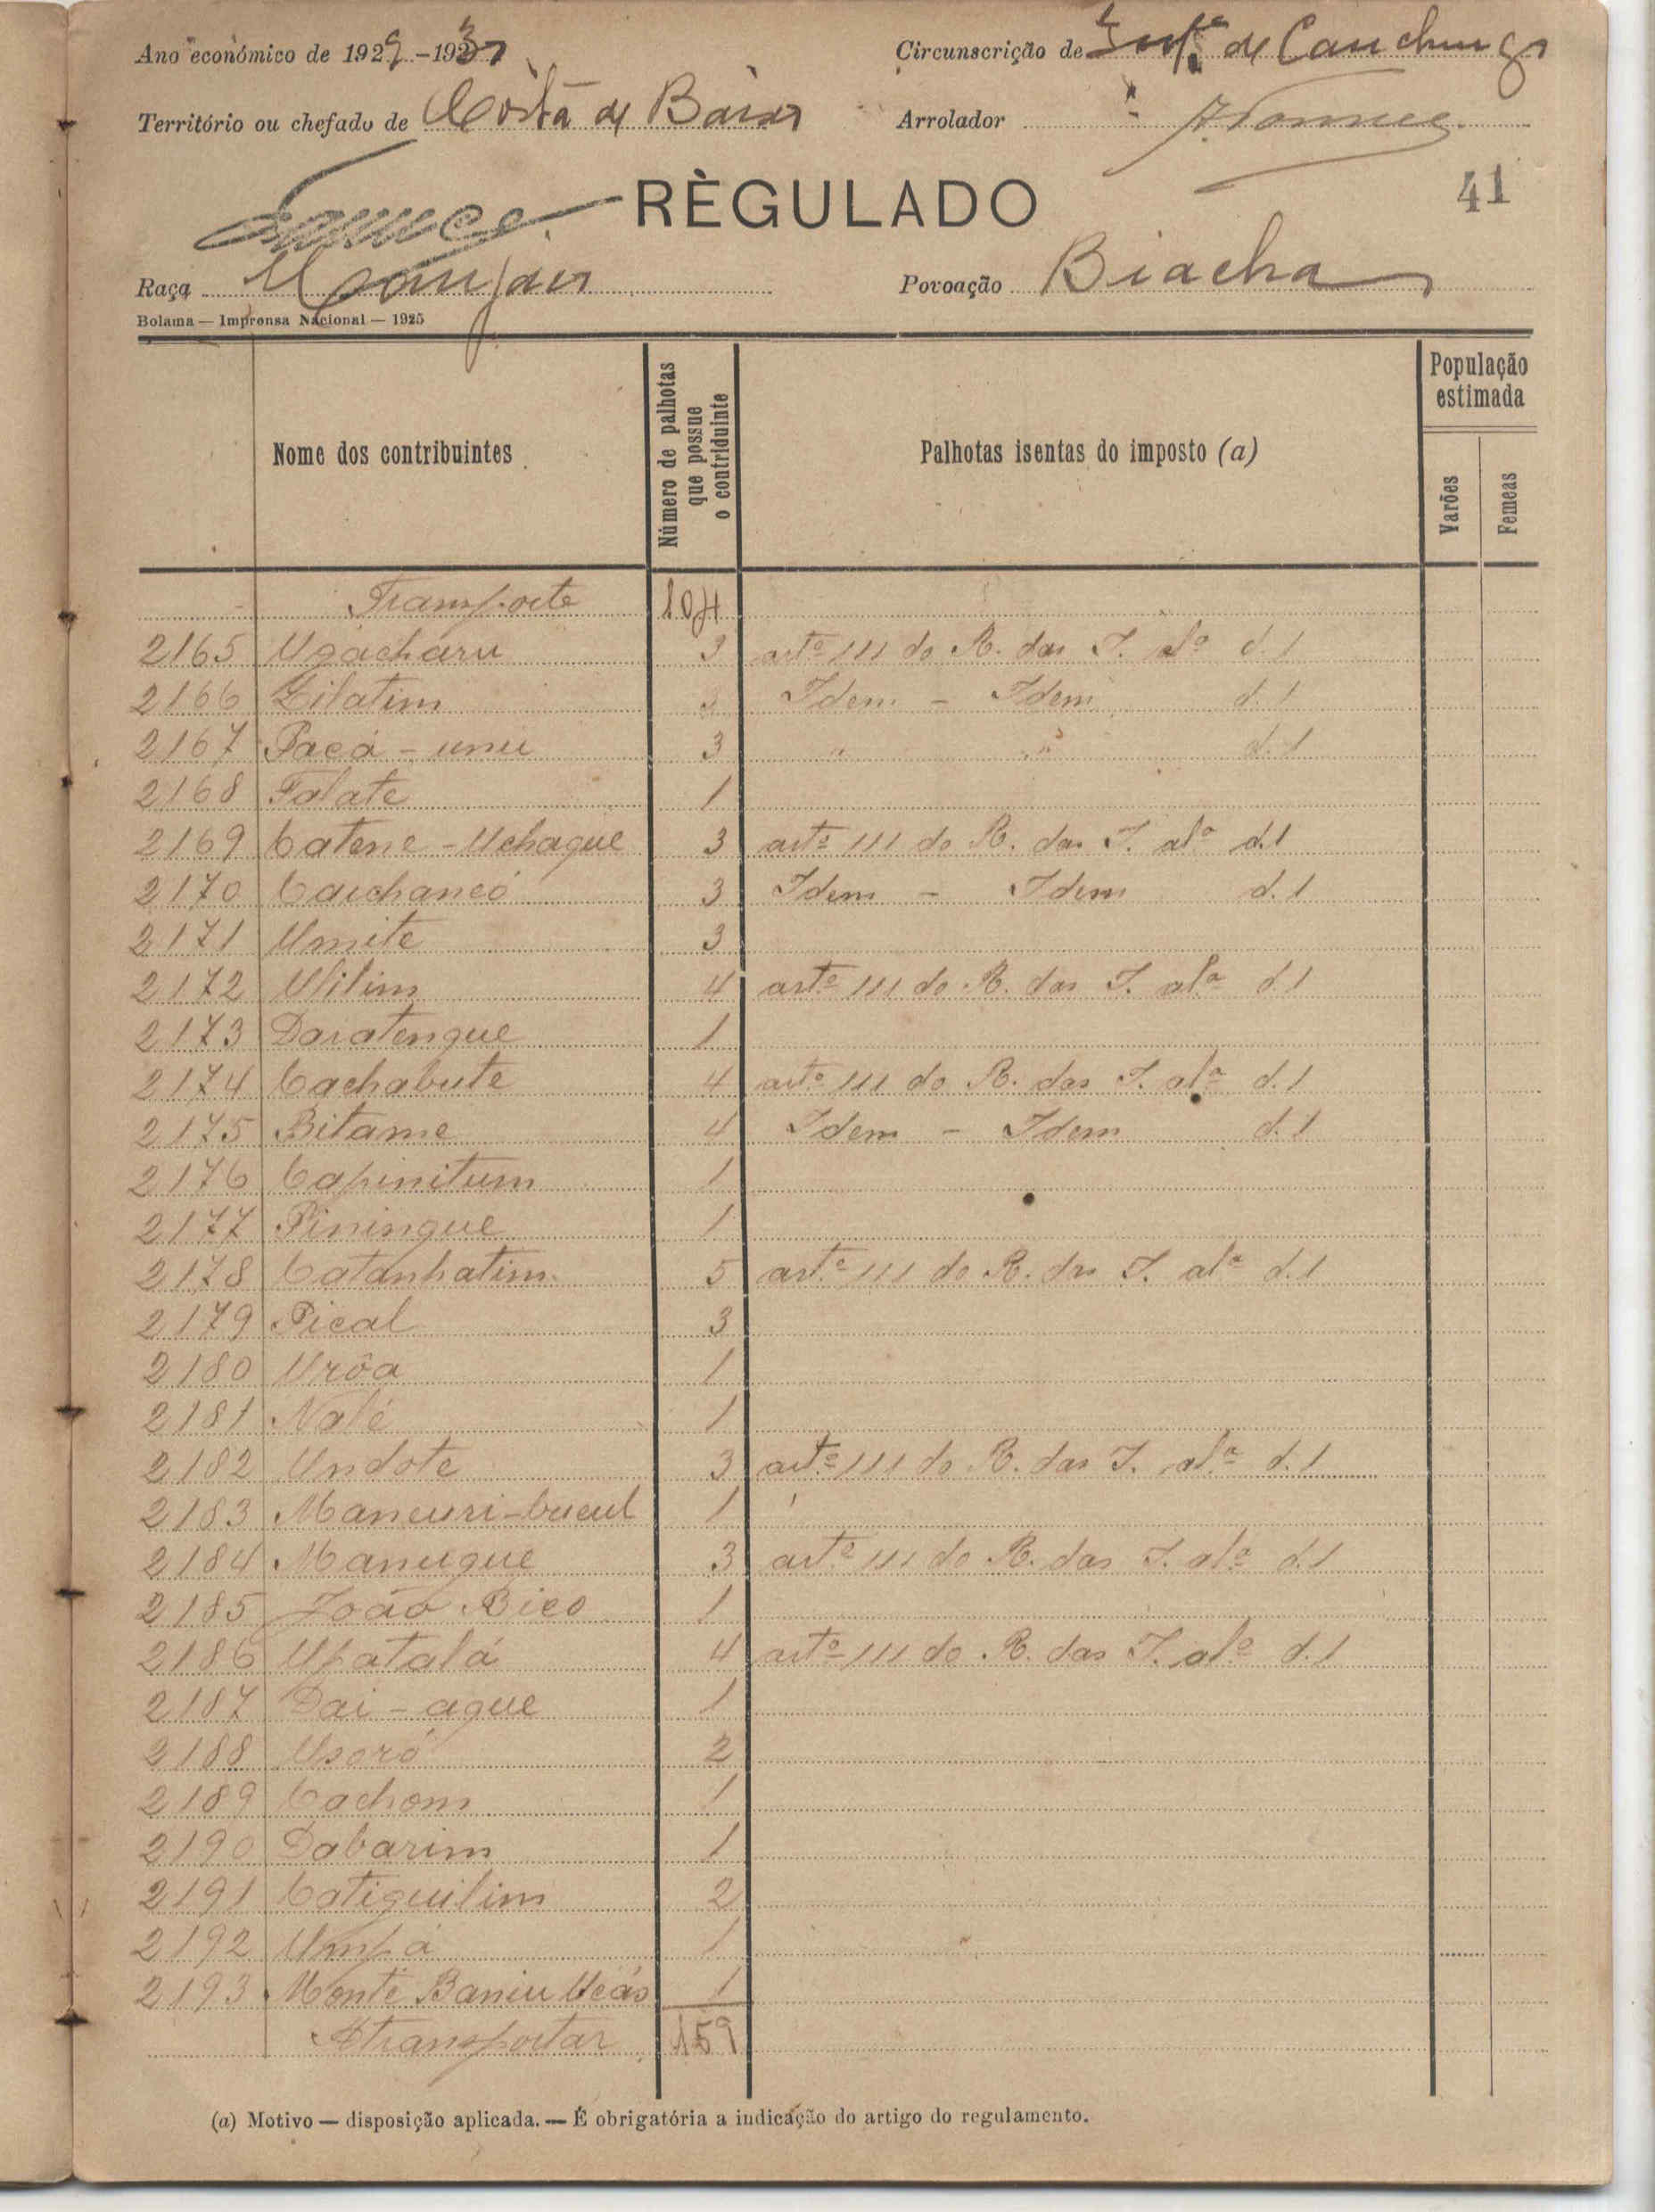 Ano económico de 1929-1930 Circunscrição de Canchungo
Território ou chefado de Costa de Baixo Arrolador
RÈGULADO 41
Raça Manjaco Povoação Biacha
Bolama — Imprensa Nacional — 1925
Nome dos contribuintes
Número de palhotas que possue o contriduinte
Palhotas isentas do imposto (a)
População estimada
Varões
Femeas
Transporte 104
2165 Ugacháru 3 artº 111 do R. das I. alª d.1
2166 Zilatim 3 Idem - Idem d.1
2167 Pacá-unu 3 " " d.1
2168 Falate 1
2169 Catene-Uchaque 3 artº 111 do R. das I. alª d.1
2170 Caichancó 3 Idem - Idem d.1
2171 Umite 3
2172 Ulilim 4 artº 111 do R. das I. alª d.1
2173 Daratengue 1
2174 Cachabute 4 artº 111 do R. das I. alª d.1
2175 Bitame 4 Idem - Idem d.1
2176 Capinitum 1
2177 Piningue 1
2178 Catanhatim 5 artº 111 do R. das I. alª d.1
2179 Pical 3
2180 Urôa 1
2181 Nalé 1
2182 Undote 3 artº 111 do R. das I. alª d.1
2183 Mancuri-bucul 1
2184 Manugue 3 artº 111 do R. das I. alª d.1
2185 João Bico 1
2186 Upatalá 4 artº 111 do R. das I. alª d.1
2187 Dai-ague 1
2188 Usoró 2
2189 Cachom 1
2190 Dabarim 1
2191 Catiquilim 2
2192 Umpá 1
2193 Monte Baniu Ucás 1
A transportar 159
(a) Motivo — disposição aplicada. — É obrigatória a indicação do artigo do regulamento.